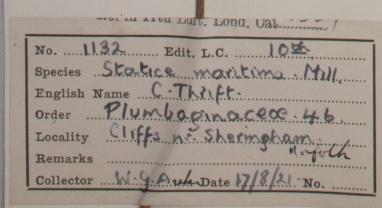 in 11th Edit. Lond. Cat.
No. 1132 Edit. L.C. 10th
Species Statice maritima Mill.
English Name C. Thrift.
Order Plumbaginaceae. 46.
Locality Cliffs nr Sheringham.
Norfolk
Remarks
Collector W. G. Date 17/8/21. No.